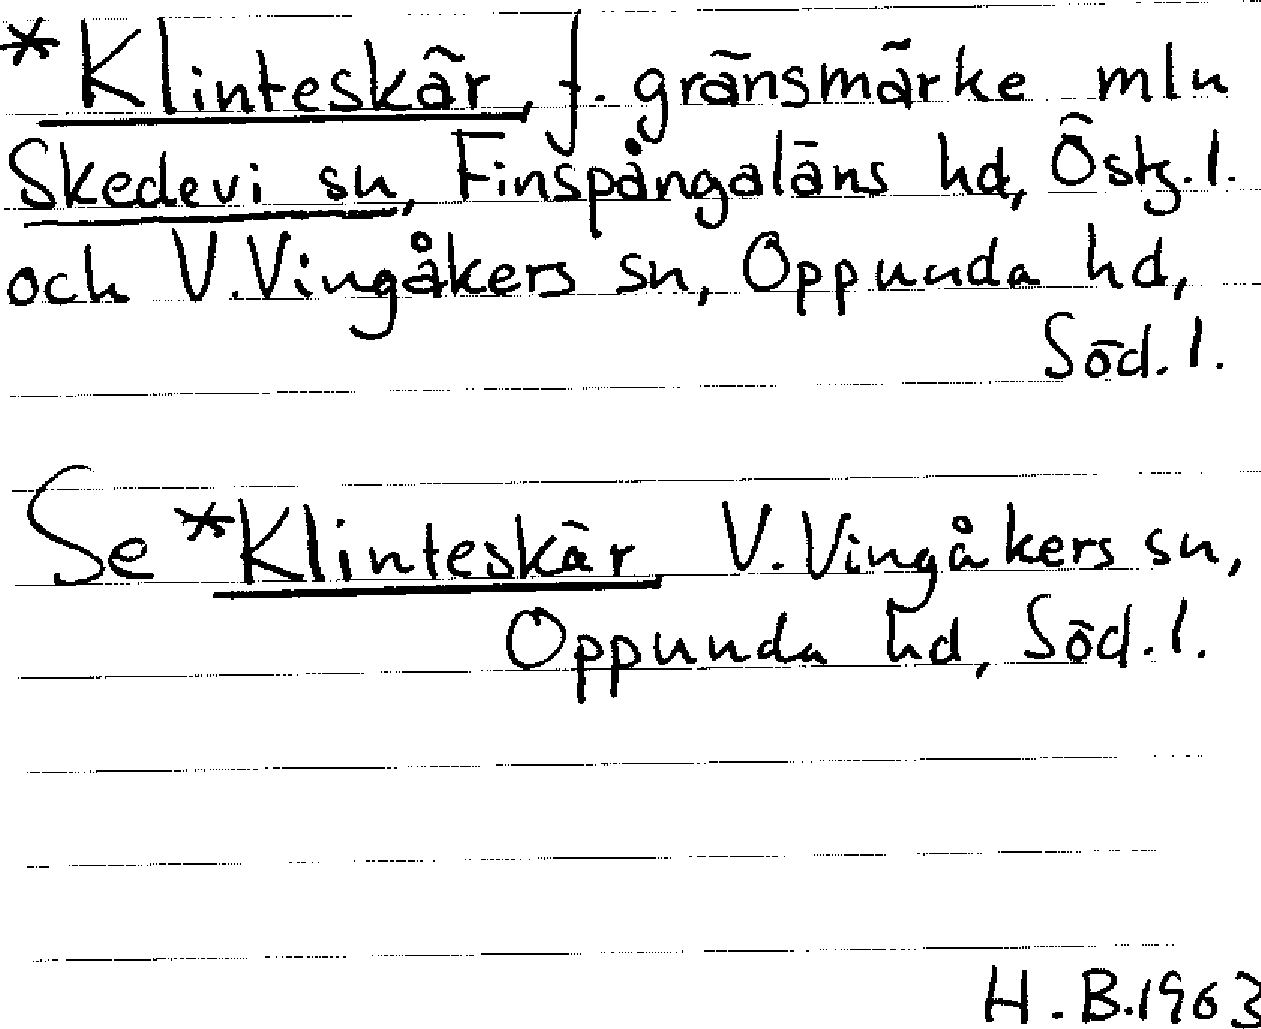 *Klinteskär, f. gränsmärke mln
Skedevi sn, Finspångaläns hd, Östg. l.
och V. Vingåkers sn, Oppunda hd,
Söd. l.
Se *Klinteskär V. Vingåkers sn,
Oppunda hd, Söd. l.
H. B. 1963